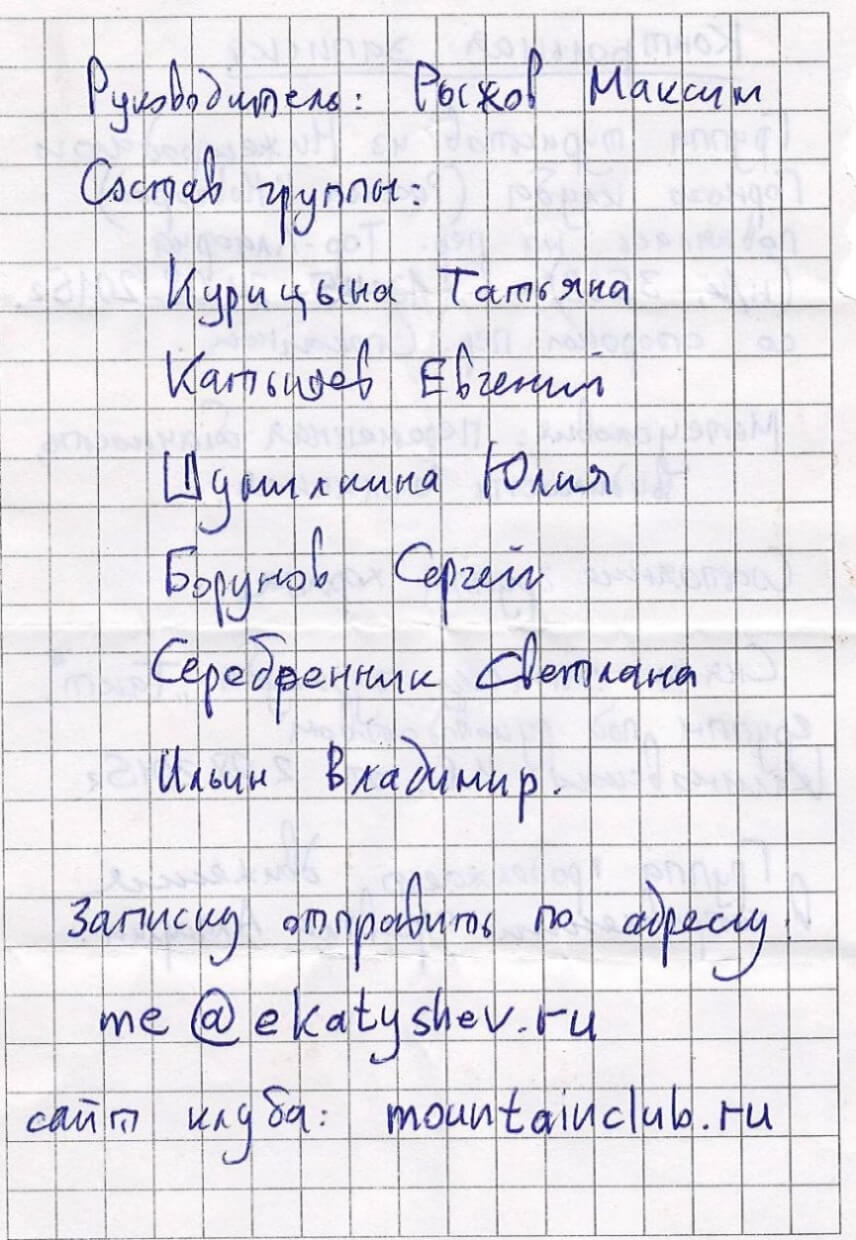 Руководитель: Рыжов Максим
Состав группы:
Курицына Татьяна
Катышев Евгений
Шумилкина Юлия
Борунов Сергей
Серебренник Светлана
Ильин Владимир.
Записку отправить по адресу:
me@ekatyshev.ru
сайт клуба: mountainclub.ru